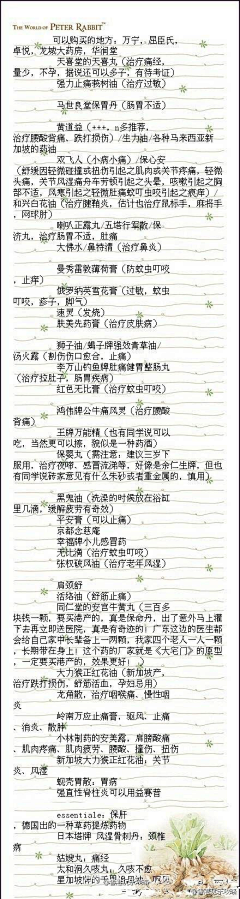 THE WORLD OF PETER RABBIT
可以购买的地方：万宁、屈臣氏，
卓悦，龙城大药房，华润堂
天喜堂的天喜丸（治疗痛经，
量少，不孕，据说还可以多子，有待考证）
强力止痛
马世良堂保胃丹（肠胃不适）
黄道益（+++，n多推荐，
治疗腰酸背痛，跌打损伤）/生力油/各种马来西亚新
加坡的药油
双飞人（小病小痛）/保心安
（舒缓因轻微碰撞或扭伤引起之肌肉或关节疼痛，轻微
头痛，关节风湿痛舟车劳顿引起之头晕，咳嗽引起之胸
部不适，风寒引起之轻微肚痛蚊叮虫咬引起之痕痒）/
和兴白花油（治疗腱鞘炎，估计也治疗鼠标手，麻将手
，网球肘）
喇叭正露丸/五塔行军散/保
济丸，治疗肠胃不适，肚痛
大佛水/鼻特清（治疗鼻炎）
曼秀雷敦薄荷膏（防蚊虫叮咬
，止痒）
俄罗纳英雪花膏（过敏，蚊虫
叮咬，疹子，脚气）
速灵（发烧）
肤美先药膏（治疗皮肤病）
狮子油/蝎子牌强效青草油/
汤火露（割伤伤口愈合，止痛）
李万山钓鱼牌肚痛健胃整肠丸
（治疗拉肚子，肠胃疾病）
红色无比膏（治疗蚊虫叮咬）
鸿伟牌公牛痛风灵（治疗腰酸
背痛）
王牌万能精（也有同学说可以
吃，当然更可以擦，貌似是一种药酒）
保婴丸（需注意，建议三岁下
服用，治疗夜啼、感冒流涕等，好像是余仁生牌，但也
有同学说砖家意见有什么朱砂或者重金属的，慎用）
黑鬼油（洗澡的时候放在浴缸
里几滴，缓解疲劳有奇效）
平安膏（可以止痛）
京都念慈庵
幸福牌小儿感冒药
无比滴（治疗蚊虫叮咬）
张权破风油（治疗老年风湿）
肩颈舒
活络油（舒筋止痛）
同仁堂的安宫牛黄丸（三百多
块钱一颗，要买港产的，真是保命丹，出了意外马上灌
下去再立即送医院，真是有奇迹的！广东这边的医生都
会给自己家中长辈备上一两颗，我家四个老人一人一颗
，长期带在身上！这个药的厂家就是《大宅门》的原型
，一定要买港产的，效果更好！）
大力猴正红花油（新加坡产，
治疗跌打损伤，舒筋活血，孕妇忌用）
龙角散，治疗咽喉痛、慢性咽
炎
岭南万应止痛膏，驱风、止痛
、消炎、散肿
小林制药的安美露，肩膀酸痛
、肌肉疼痛、肌肉疲劳、腰酸、撞伤、扭伤
新加坡大力猴正红花油，关节
炎、风湿
蚬壳胃散：胃病
强直性脊柱炎可以用益赛普
essentiale：保肝
，德国出的一种草药提炼药物
日本塔牌 风湿骨刺丹、颈椎
病
姑嫂丸，痛经
太和洞久咳丸：久咳不愈